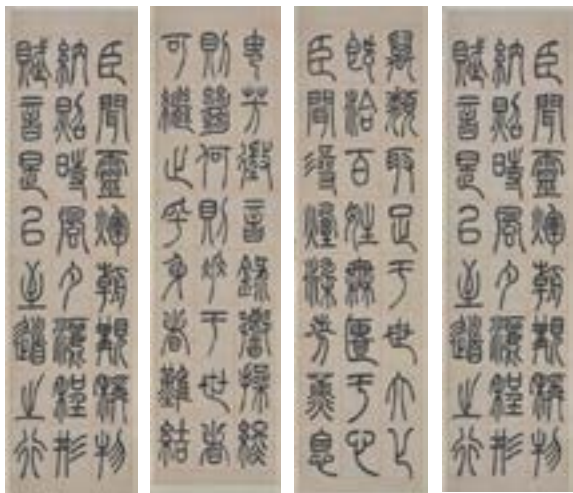 臣聞靈輝朝覯稱物
納照時風夕灑程形
賦音是以至道之行
萬類取足于世大化
既洽百姓無匱于心
臣聞尋煙染芬薰息
猶芳徵音錄響操終
則絕何則垂于世者
可繼止乎身者難結
臣聞靈輝朝覯稱物
納照時風夕灑程形
賦音是以至道之行